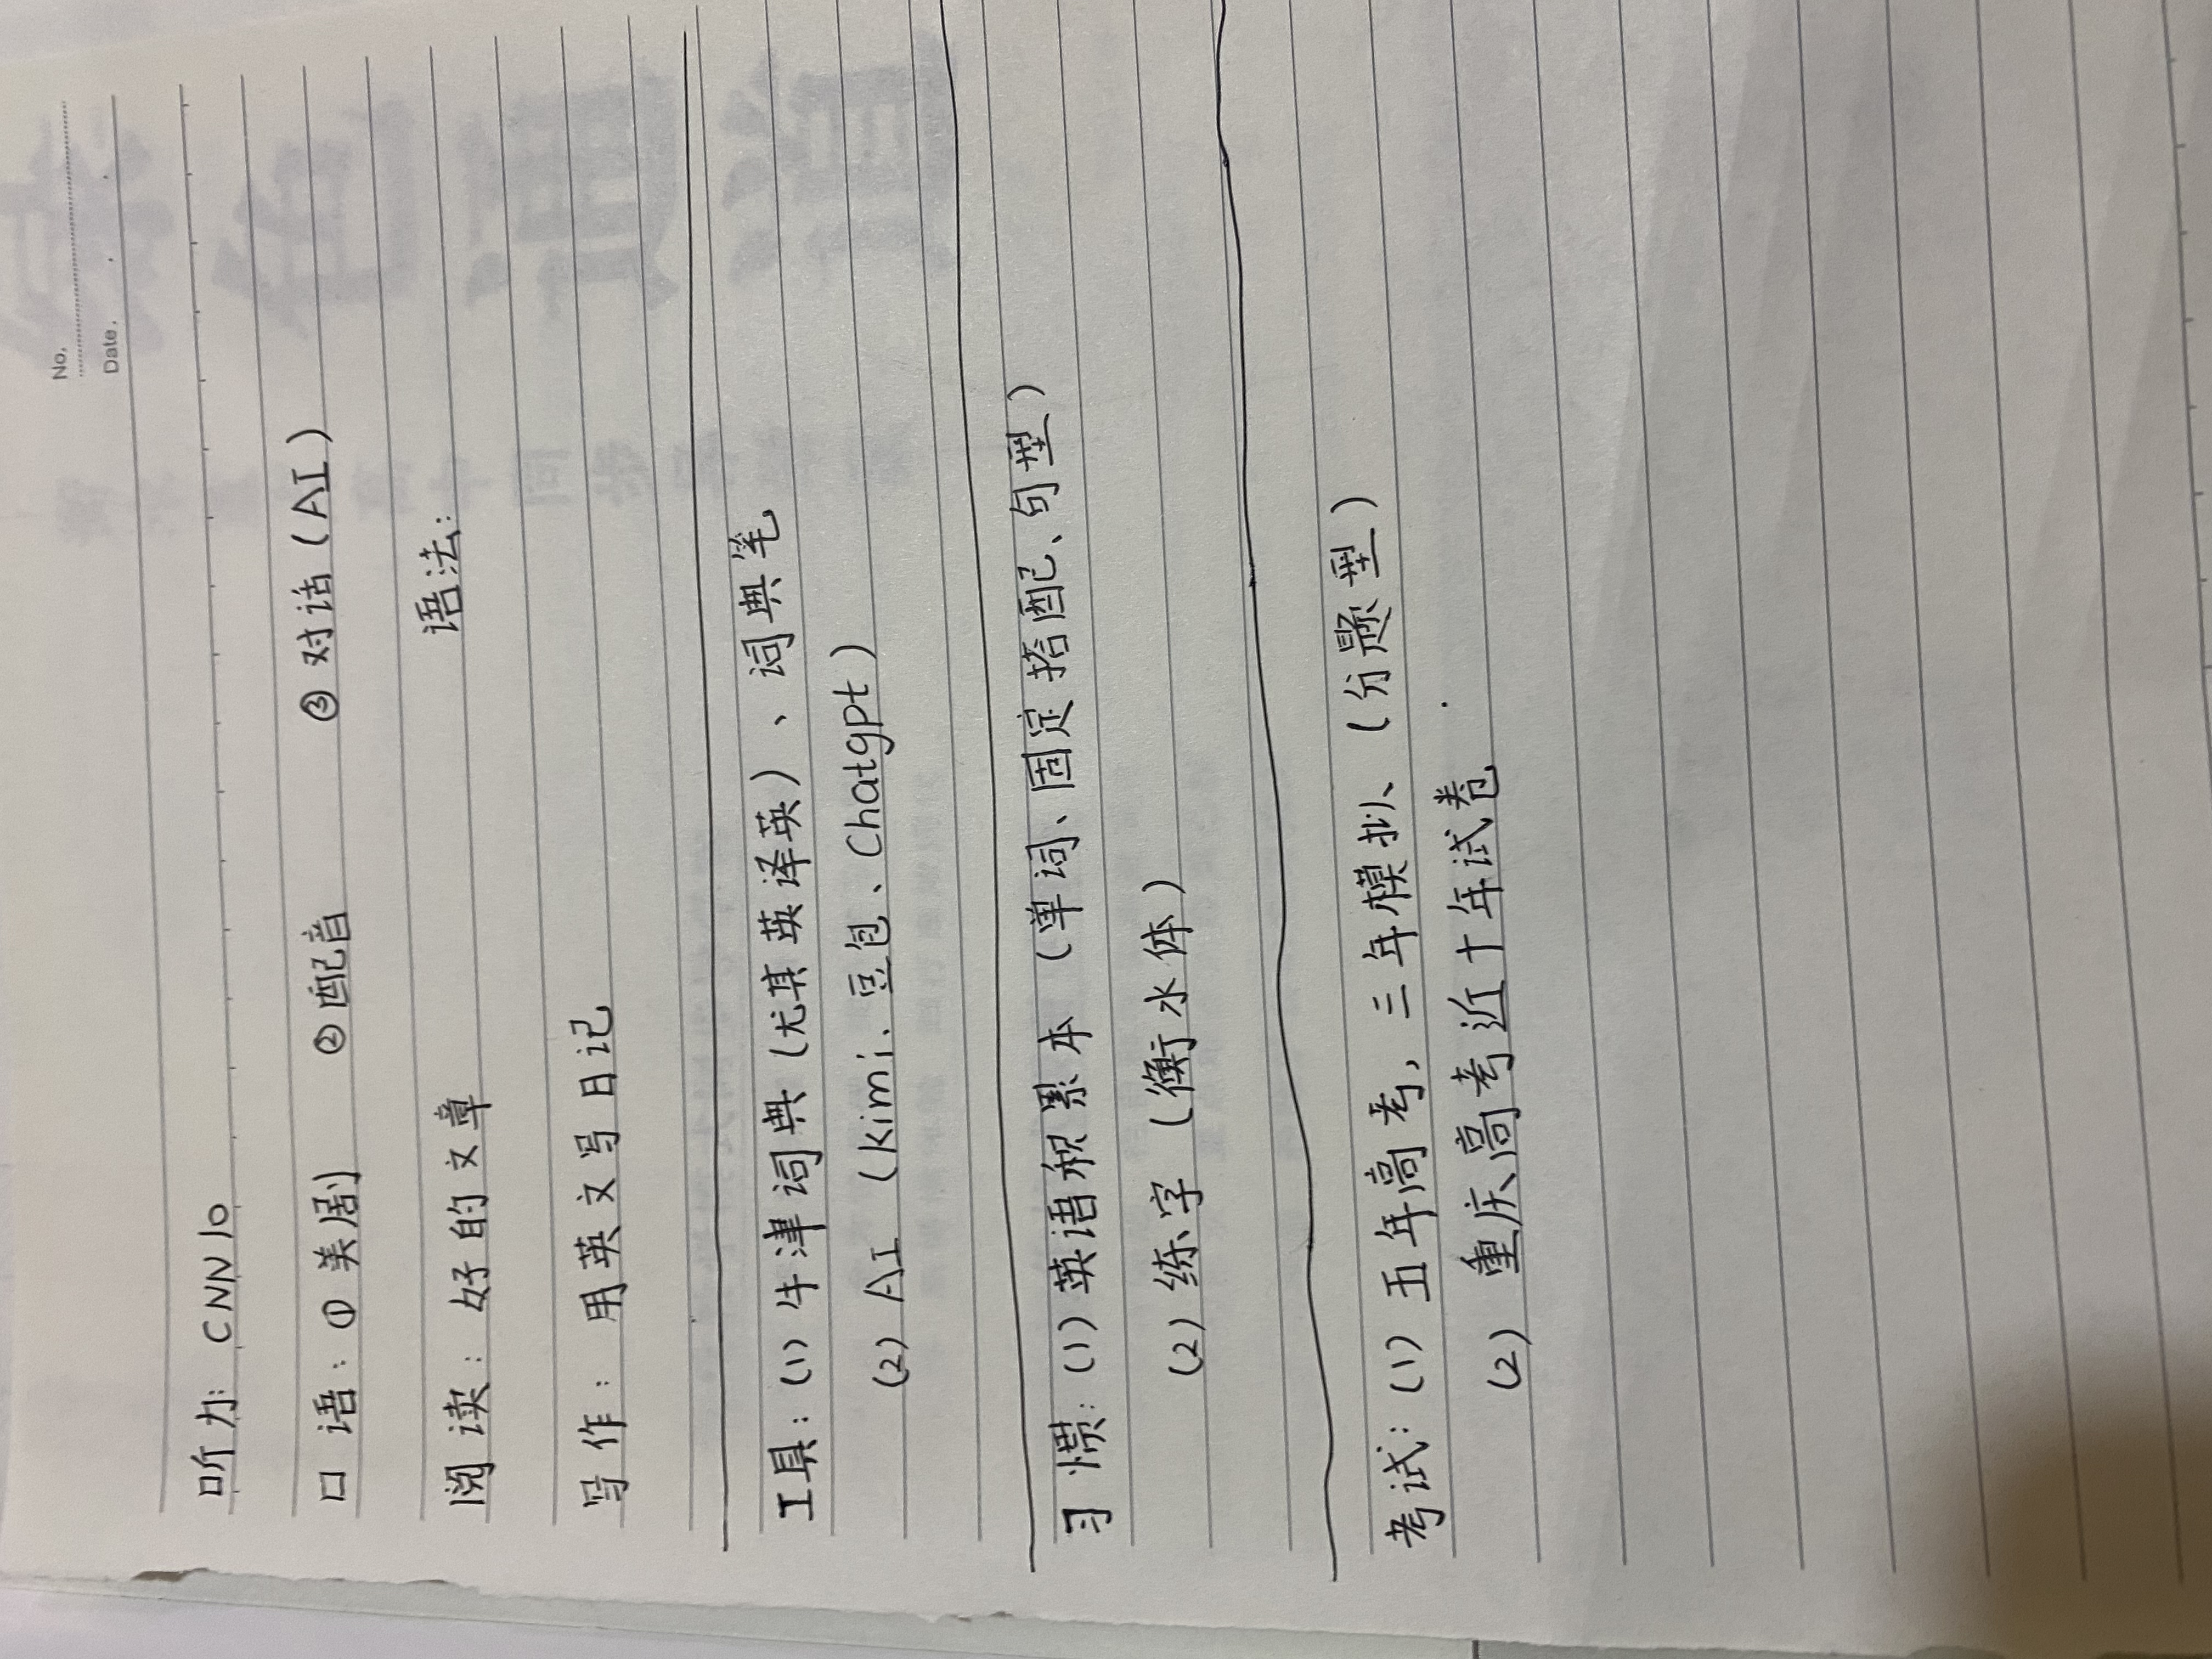 No.
Date.
听力: CNN10
口语: ① 美剧 ② 配音 ③ 对话 (AI)
阅读: 好的文章 语法:
写作: 用英文写日记
工具: (1) 牛津词典 (尤其英译英)、词典笔
(2) AI (kimi、豆包、Chatgpt)
习惯: (1) 英语积累本 (单词、固定搭配、句型)
(2) 练字 (衡水体)
考试: (1) 五年高考, 三年模拟、(分题型)
(2) 重庆高考近十年试卷